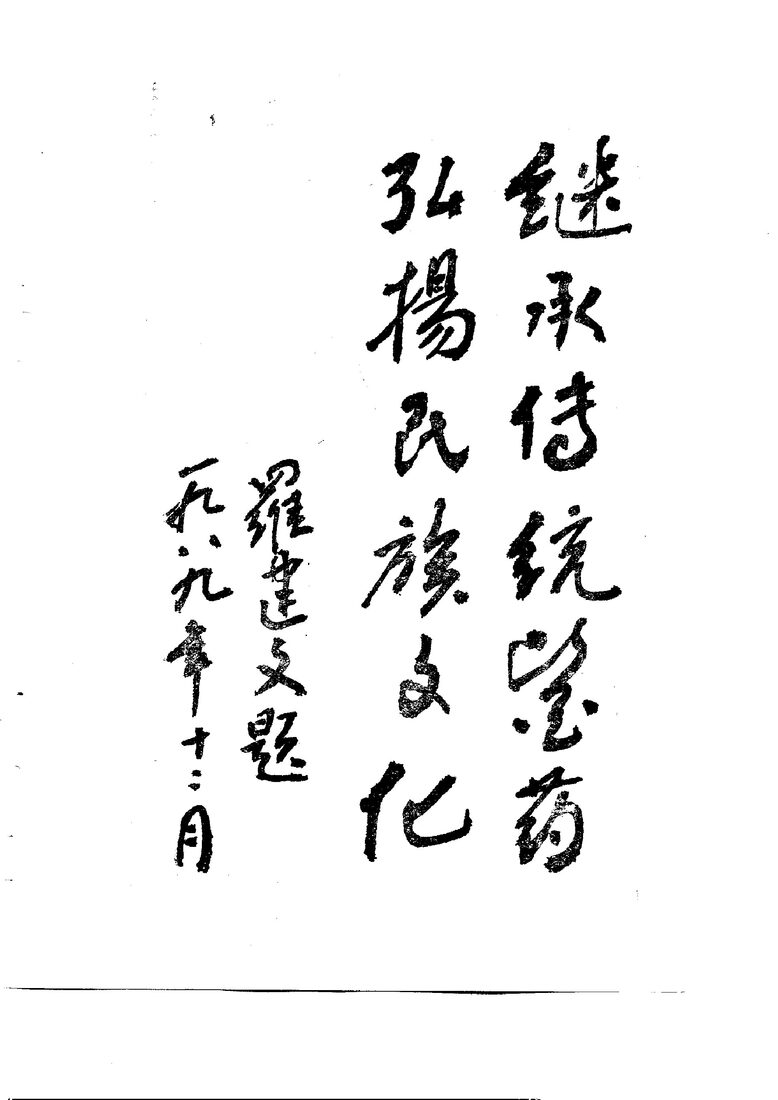 继承传统醫药
弘揚民族文化
羅建文題
一九八九年十二月